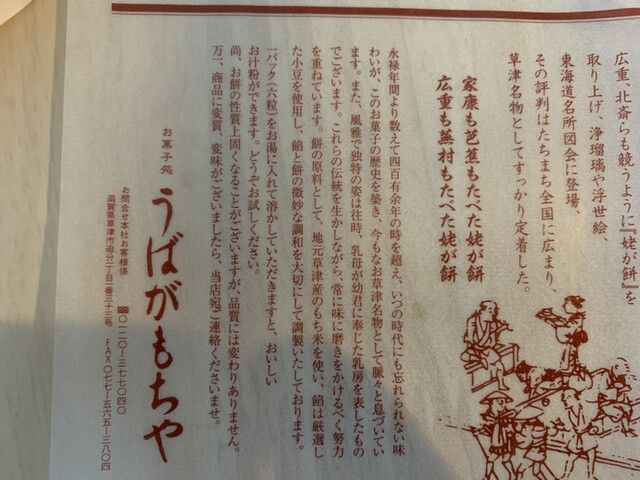 広重、北斎らも競うように『姥が餅』を
取り上げ、浄瑠璃や浮世絵、
東海道名所図会に登場、
その評判はたちまち全国に広まり、
草津名物としてすっかり定着した。
家康も芭蕉もたべた姥が餅
広重も蕪村もたべた姥が餅
永禄年間より数えて四百有余年の時を超え、いつの時代にも忘れられない味
わいが、このお菓子の歴史を築き、今もなお草津名物として脈々と息づいてい
ます。また、風雅で独特の姿は往時、乳母が幼君に奉じた乳房を表したもの
でございます。これらの伝統を生かしながら、常に味に磨きをかけるべく努力
を重ねています。餅の原料として、地元草津産のもち米を使い、餡は厳選し
た小豆を使用し、餡と餅の微妙な調和を大切にして調製いたしております。
一パック(六粒)をお湯に入れて溶かしていただきますと、おいしい
お汁粉ができます。どうぞお試しください。
尚、お餅の性質上固くなることがございますが、品質には変わりありません。
万一、商品に変質、変味がございましたら、当店宛ご連絡くださいませ。
お菓子処 うばがもちや
お問合せ本社お客様係 〇一二〇ー三七七〇四〇
滋賀県草津市追分二丁目二番三十三号 FAX〇七七ー五六五ー三八〇四